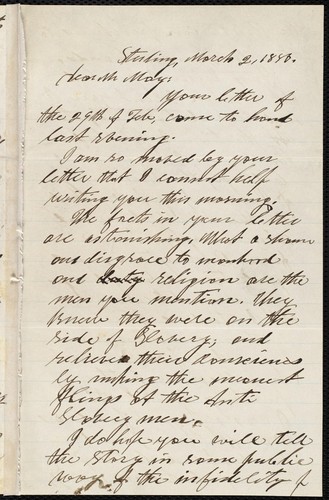 Sterling, March 2, 1888.
Dear Mr May:
Your letter of
the 29th of Feb, came to hand
last evening.
I am so moved by your
letter that I cannot help
writing you this morning.
The facts in your letter
are astonishing. What a shame
and disgrace to manhood
and religion are the
men you mention. They
knew they were on the
side of Slavery, and
relieved their consciences
by making the meanest
flings at the Anti
Slavery men.
I do hope you will tell
the story in some public
way of the infidelity of